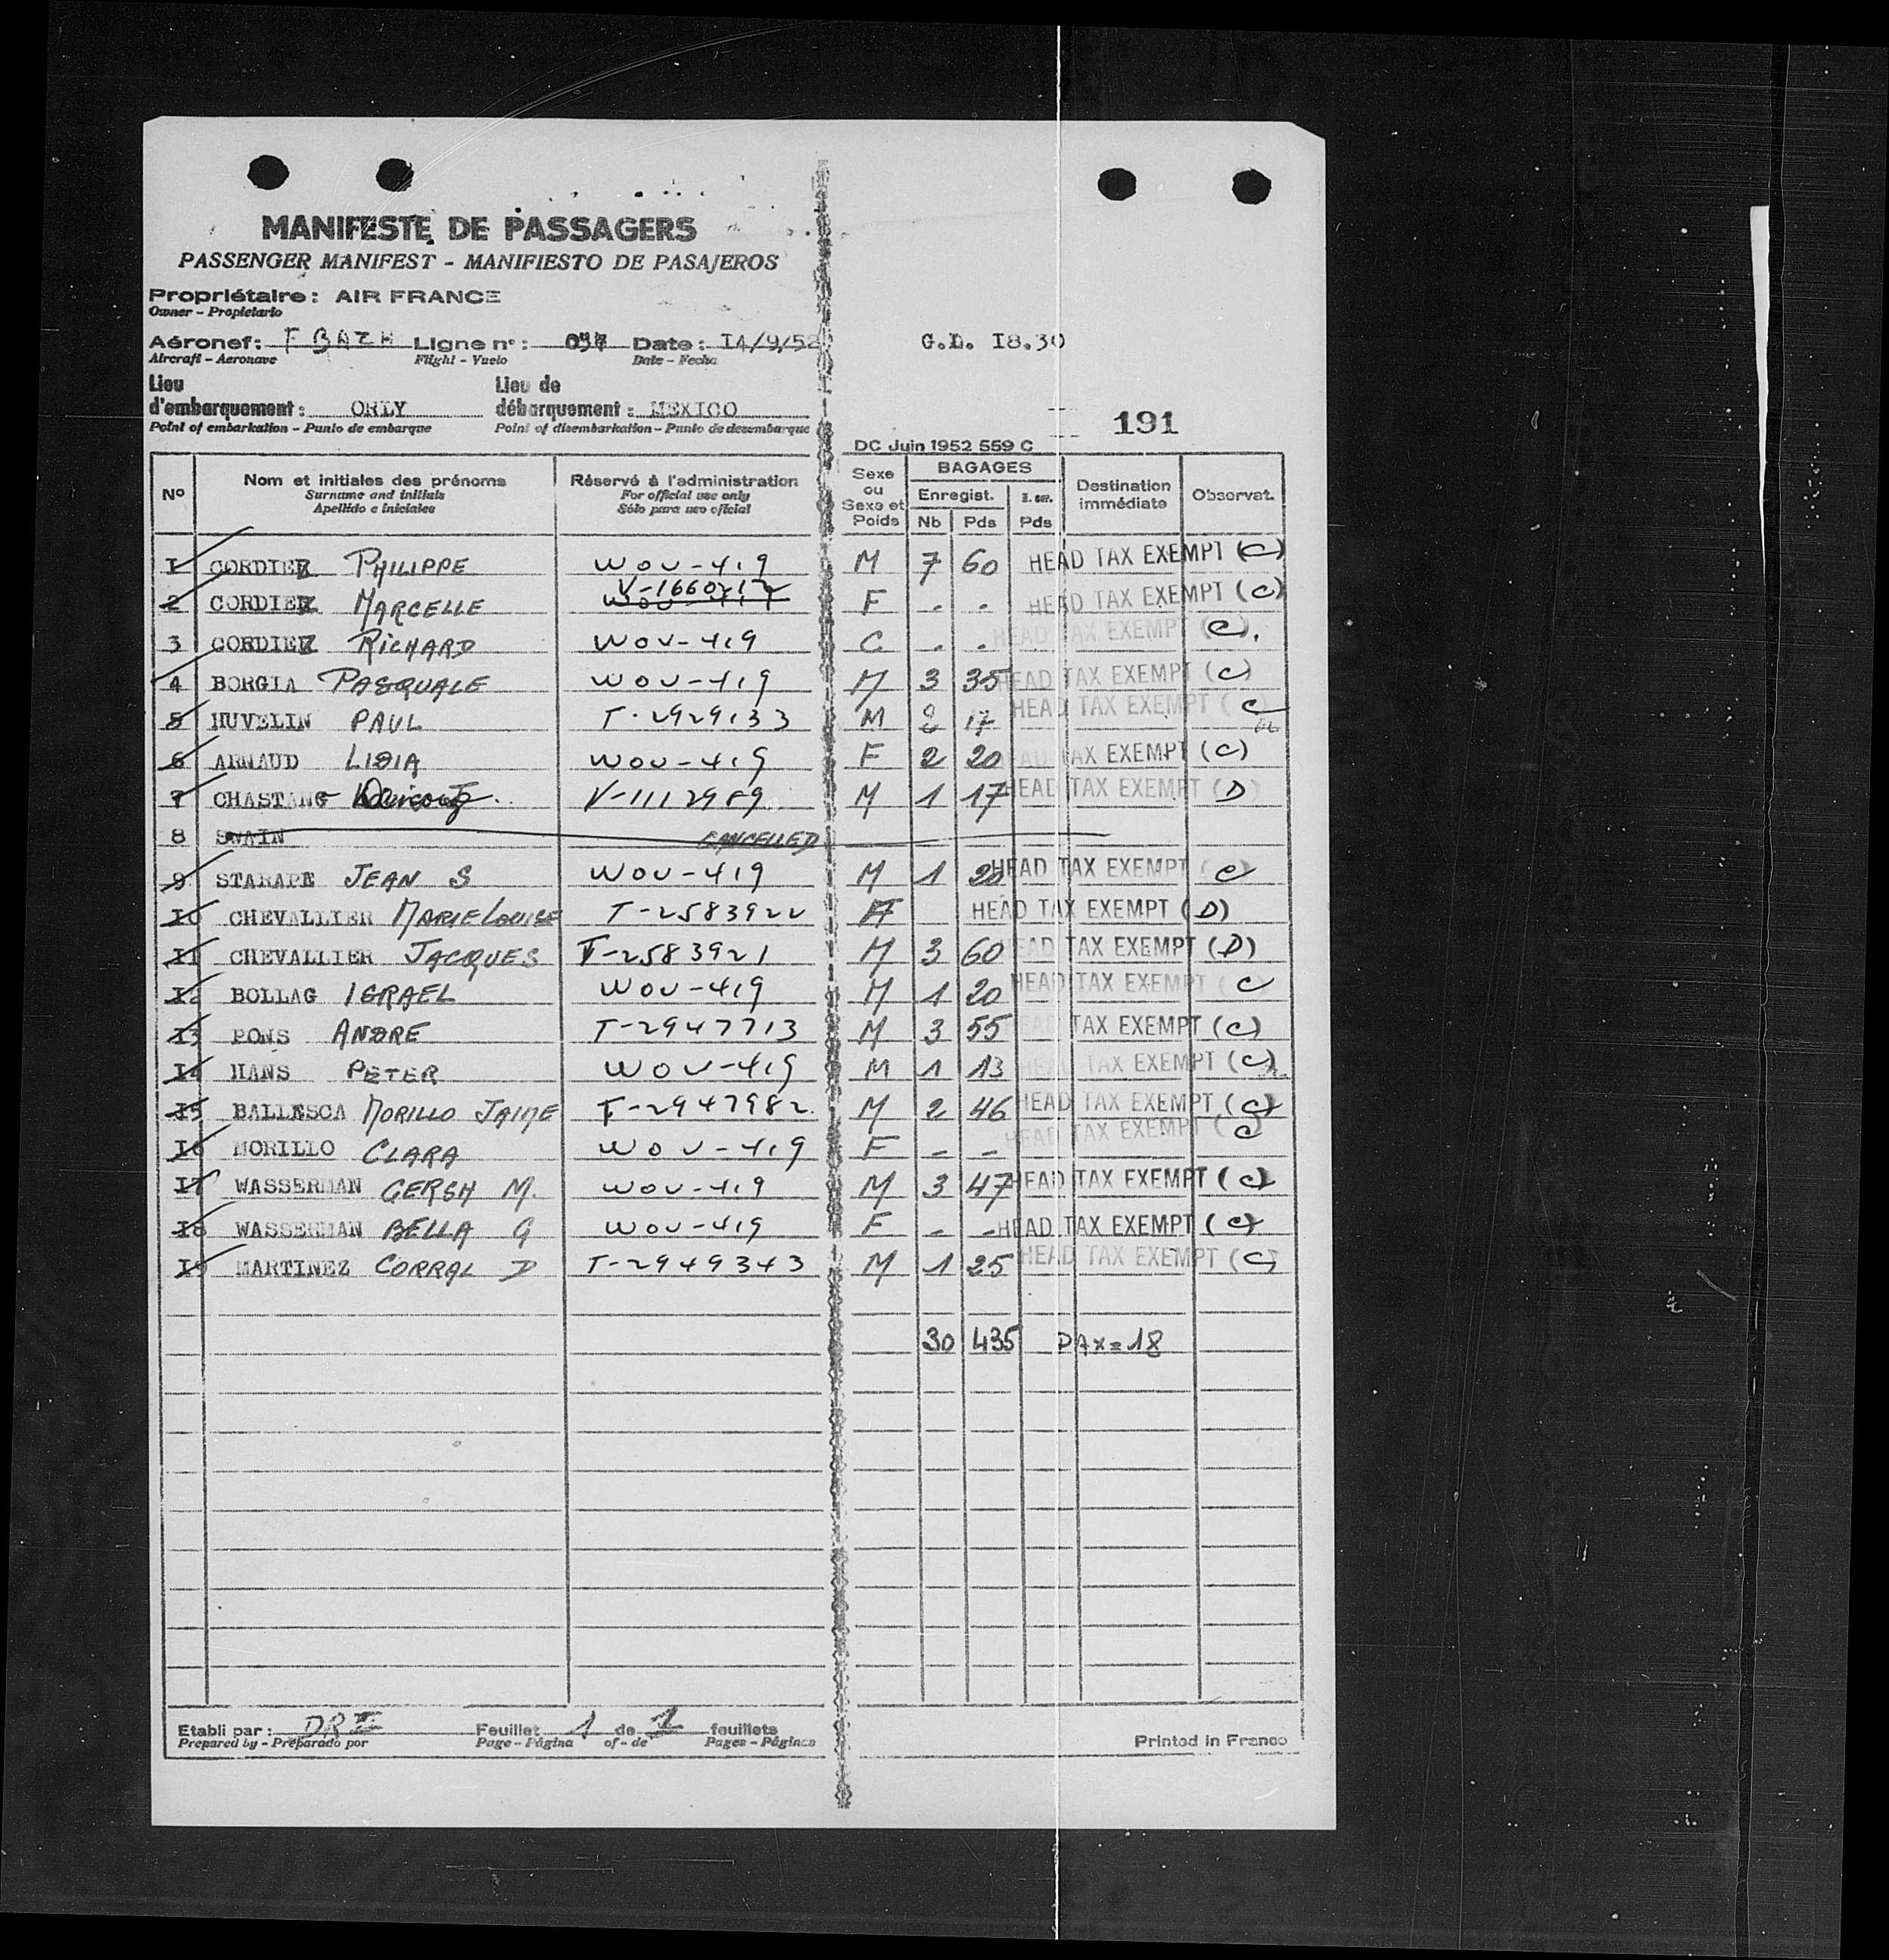 MANIFESTE DE PASSAGERS
PASSENGER MANIFEST - MANIFIESTO DE PASAJEROS
Propriétaire : AIR FRANCE
Owner - Propietario
Aéronef : F BAZH Ligne n° : Date : I4/9/52 G.D. I8.30
Aircraft - Aeronave Flight - Vuelo Date - Fecha
Lieu Lieu de
d'embarquement : ORLY débarquement : MEXICO
Point of embarkation - Punto de embarque Point of disembarkation - Punto de desembarque
191
DC Juin 1952 559 C
N° Nom et initiales des prénoms Réservé à l'administration Sexe ou Sexe et Poids BAGAGES Destination immédiate Observat.
Surname and initials For official use only Enregist.
Apellido e iniciales Sólo para uso oficial Nb Pds Pds
1 CORDIER PHILIPPE WOU-419 M 7 60 HEAD TAX EXEMPT (C)
2 CORDIER MARCELLE V-1660212 F - - HEAD TAX EXEMPT (C)
3 CORDIER RICHARD WOU-419 C - - HEAD TAX EXEMPT (C)
4 BORGIA PASQUALE WOU-419 M 3 35 HEAD TAX EXEMPT (C)
5 HUVELIN PAUL T-2929133 M 2 17 HEAD TAX EXEMPT (C
6 ARNAUD LIDIA WOU-419 F 2 20 HEAD TAX EXEMPT (C)
7 CHASTANG V-1112989 M 1 17 HEAD TAX EXEMPT (D)
8 SWAIN CANCELLED
9 STARAPE JEAN S WOU-419 M 1 20 HEAD TAX EXEMPT (C)
I0 CHEVALLIER MARIE LOUISE T-2583922 F HEAD TAX EXEMPT (D)
I1 CHEVALLIER JACQUES T-2583921 M 3 60 HEAD TAX EXEMPT (D)
I2 BOLLAG ISRAEL WOU-419 M 1 20 HEAD TAX EXEMPT (C
I3 PONS ANDRE T-2947713 M 3 55 HEAD TAX EXEMPT (C)
I4 HANS PETER WOU-419 M 1 13 HEAD TAX EXEMPT (C)
I5 BALLESCA MORILLO JAIME T-2947982 M 2 46 HEAD TAX EXEMPT (C)
I6 MORILLO CLARA WOU-419 F - - HEAD TAX EXEMPT (C
I7 WASSERMAN GERSH M. WOU-419 M 3 47 HEAD TAX EXEMPT (C)
I8 WASSERMAN BELLA G WOU-419 F - - HEAD TAX EXEMPT (C)
I9 MARTINEZ CORRAL D T-2949343 M 1 25 HEAD TAX EXEMPT (C)
30 435 PAX=18
Etabli par : Feuillet 1 de 1 feuillets
Prepared by - Préparado por Page - Página of - de Pages - Páginas Printed in France